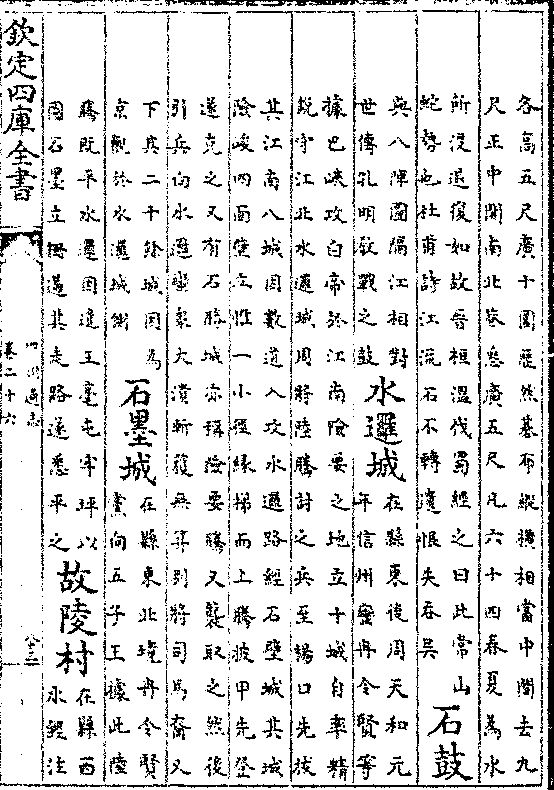 各高五尺廣十圍歷然棊布縱橫相當中間去九
尺正中間南北巷悉廣五尺凡六十四春夏為水
所没退復如故晉桓溫伐蜀經之曰此常山
蛇勢也杜甫詩江流石不轉遺恨失吞吳
石鼓
與八陣圖隔江相對
世傳孔明教戰之鼓
水邏城
在縣東後周天和元
年信州蠻冉令賢等
據巴峽攻白帝於江南險要之地立十城自率精
銳守江北水邏城周將陸騰討之兵至湯口先拔
其江南八城因數道入攻水邏路經石壁城其城
險峻四面壁立惟一小徑緣梯而上騰披甲先登
遂克之又有石勝城亦稱險要騰又襲取之然後
引兵向水邏蠻衆大潰斬獲無算别將司馬裔又
下其二十餘城因為
京觀於水邏城側
石墨城
在縣東北境冉令賢
黨向五子王據此陸
騰既平水邏因進王亳屯牢坪以
圖石墨立柵遏其走路遂悉平之
故陵村
在縣西
水經注
欽定四庫全書
四川通志
卷二十六